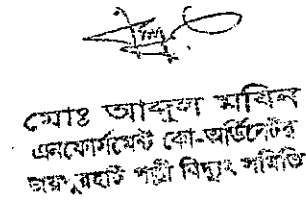 মোঃ আব্দুল মবিন
এনফোর্সমেন্ট কো-অর্ডিনেটর
জয়পুরহাট পল্লী বিদ্যুৎ সমিতি